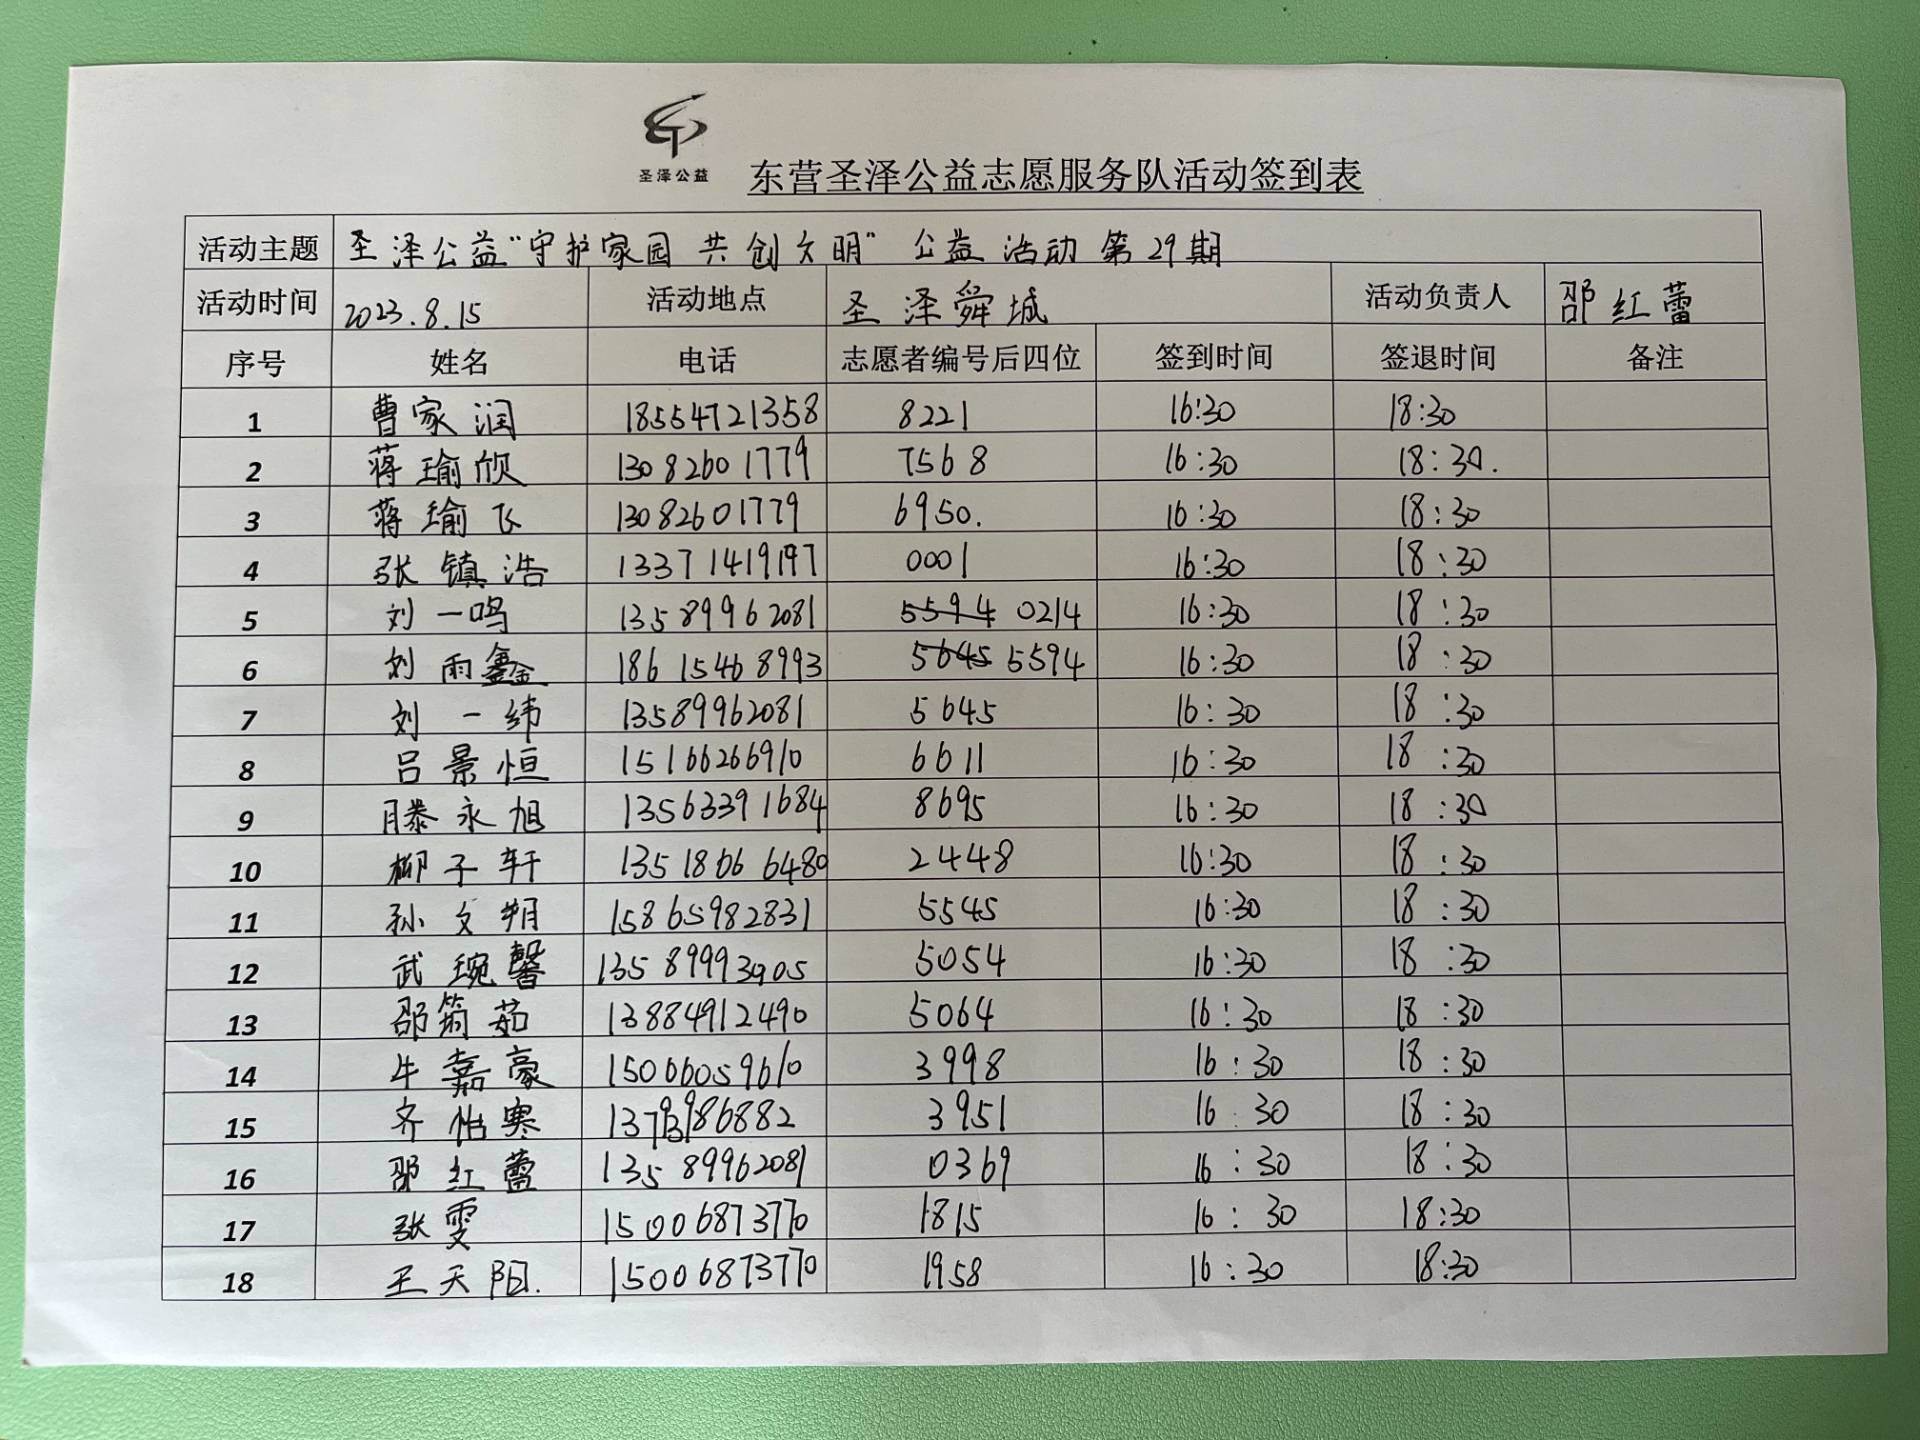 圣泽公益
东营圣泽公益志愿服务队活动签到表
活动主题 圣泽公益"守护家园 共创文明" 公益活动 第29期
活动时间 2023.8.15 活动地点 圣泽舜城 活动负责人 邵红蕾
序号 姓名 电话 志愿者编号后四位 签到时间 签退时间 备注
1 曹家润 18554721358 8221 16:30 18:30
2 蒋瑜欣 13082601779 7568 16:30 18:30.
3 蒋瑜飞 13082601779 6950. 16:30 18:30
4 张镇浩 13371419197 0001 16:30 18:30
5 刘一鸣 13589962081 5594 0214 16:30 18:30
6 刘雨鑫 18615468993 5645 5594 16:30 18:30
7 刘一纬 13589962081 5645 16:30 18:30
8 吕景恒 15166266910 6611 16:30 18:30
9 滕永旭 13563391684 8695 16:30 18:30
10 柳子轩 13518666480 2448 16:30 18:30
11 孙文朔 15865982831 5545 16:30 18:30
12 武琬馨 13589993905 5054 16:30 18:30
13 邵筠茹 13884912490 5064 16:30 18:30
14 牛嘉豪 15066059610 3998 16:30 18:30
15 齐怡寒 3951 16:30 18:30
16 邵红蕾 13589962081 0369 16:30 18:30
17 张雯 15006873770 1815 16:30 18:30
18 王天阳. 15006873770 1958 16:30 18:30